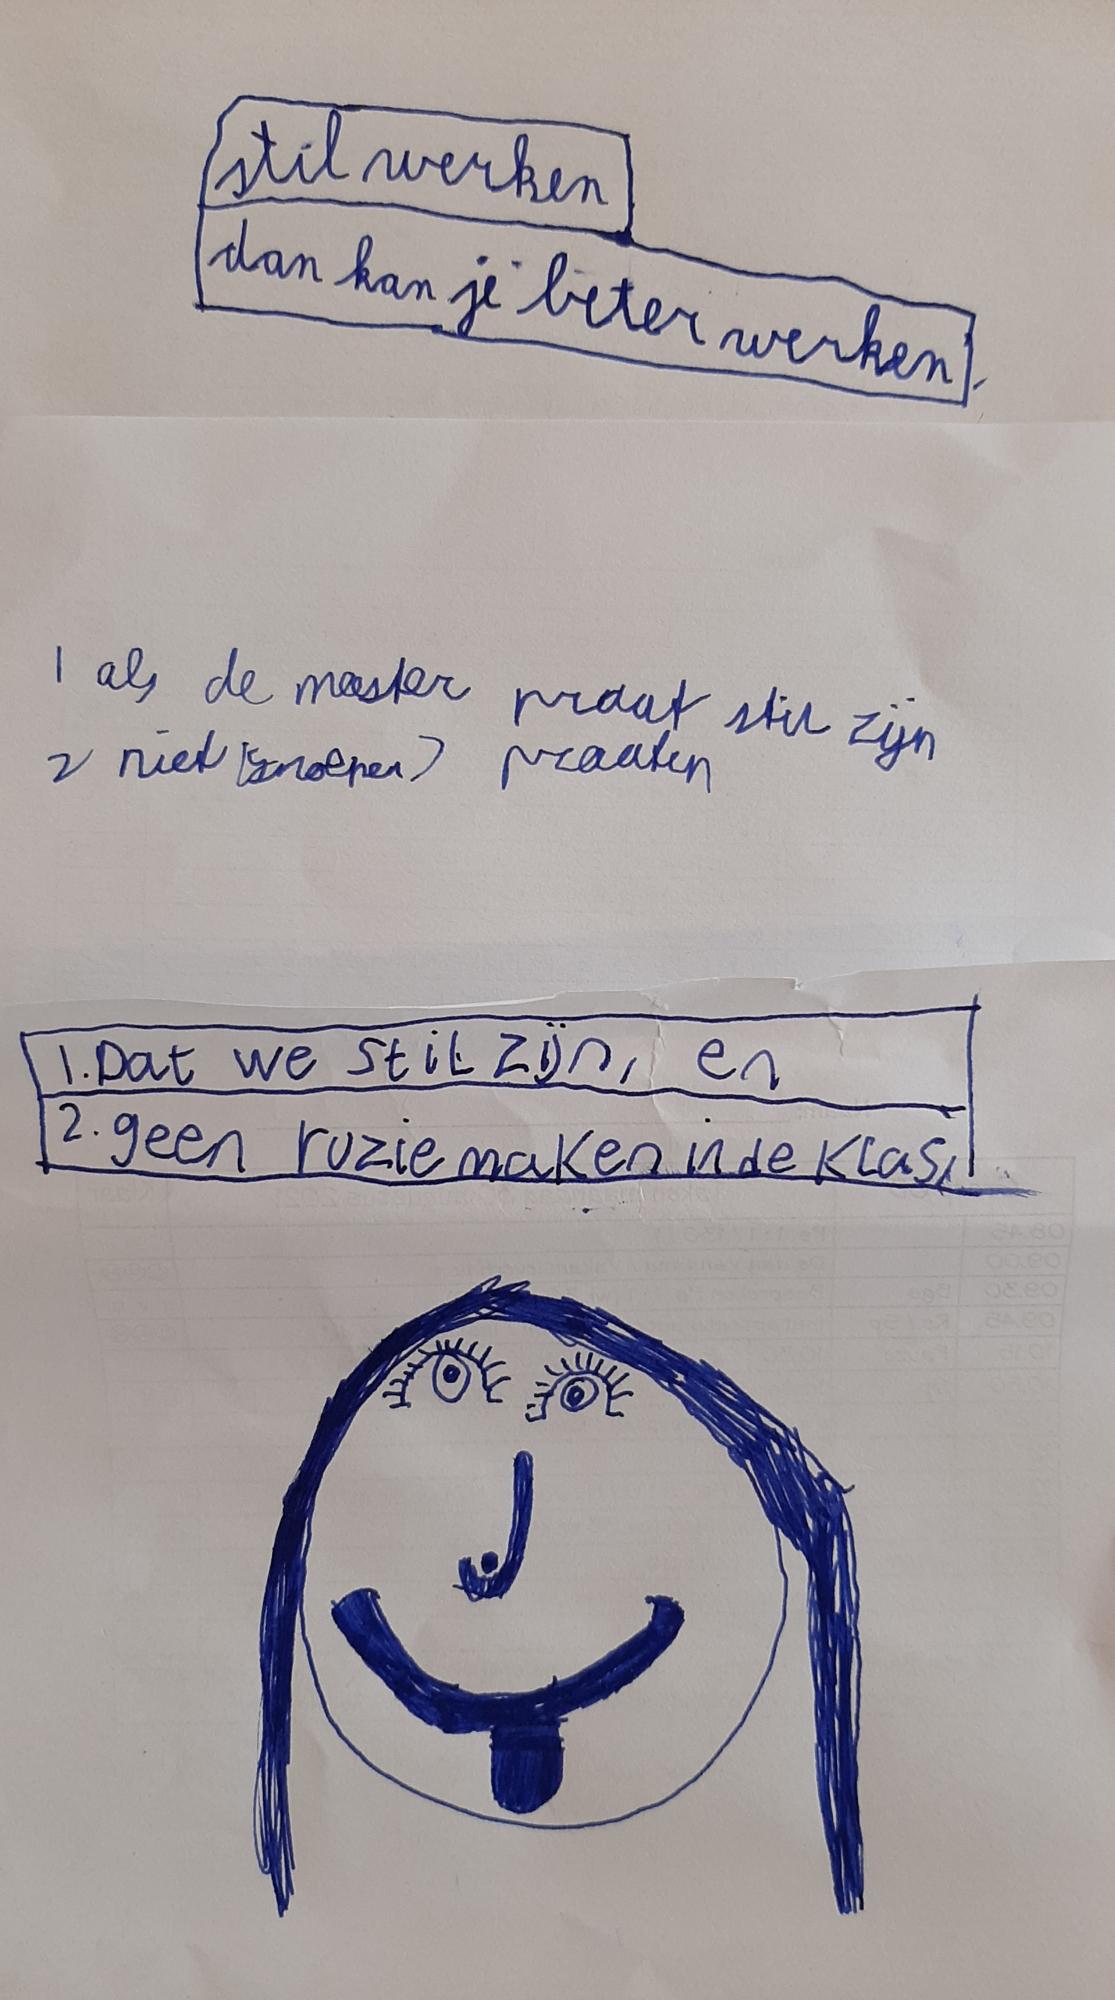 stil werken
dan kan je beter werken.
1 als de meester praat stil zijn
2 niet (snoepen) praaten
1. Dat we stil zijn, en
2. geen ruzie maken in de klas,
08.45
09.00
09.30
09.45